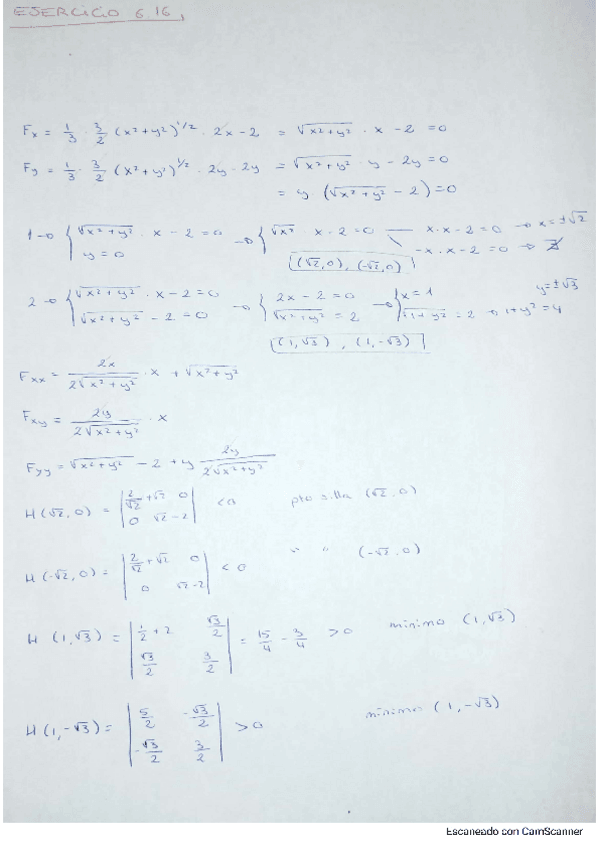 EJERCICIO 6.16,
Fx = 1/3 · 3/2 (x²+y²)^1/2 · 2x - 2 = √(x²+y²) · x - 2 = 0
Fy = 1/3 · 3/2 (x²+y²)^1/2 · 2y - 2y = √(x²+y²) · y - 2y = 0
= y · (√(x²+y²) - 2) = 0
1 → { √(x²+y²) · x - 2 = 0 → { √x² · x - 2 = 0 — x·x - 2 = 0 → x = ±√2
y = 0 -x·x - 2 = 0 → ∄
(√2,0), (-√2,0)
2 → { √(x²+y²) · x - 2 = 0 → { 2x - 2 = 0 → { x = 1 y = ±√3
√(x²+y²) - 2 = 0 √(x²+y²) = 2 √(1+y²) = 2 → 1+y² = 4
(1,√3), (1,-√3)
Fxx = 2x / 2√(x²+y²) · x + √(x²+y²)
Fxy = 2y / 2√(x²+y²) · x
Fyy = √(x²+y²) - 2 + y 2y / 2√(x²+y²)
H(√2,0) = | 2/√2 + √2 0 | < 0 pto silla (√2,0)
| 0 √2 - 2 |
H(-√2,0) = | 2/√2 + √2 0 | < 0 " " (-√2,0)
| 0 √2 - 2 |
H (1,√3) = | 1/2 + 2 √3/2 | = 15/4 - 3/4 > 0 mínimo (1,√3)
| √3/2 3/2 |
H(1,-√3) = | 5/2 -√3/2 | > 0 mínimo (1,-√3)
| -√3/2 3/2 |
Escaneado con CamScanner